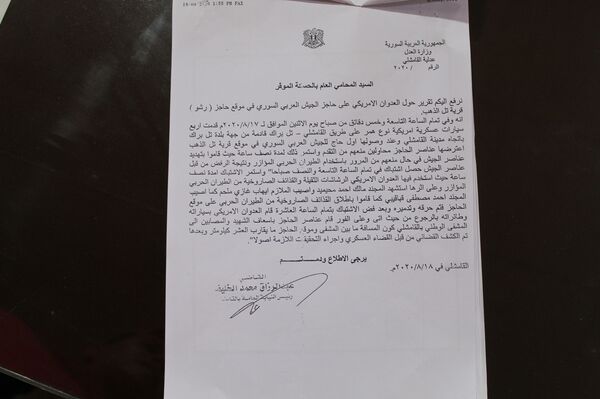 1:55 PM FAX
الجمهورية العربية السورية
وزارة العدل
عدلية القامشلي
الرقم / ٢٠٢٠
السيد المحامي العام بالحسكة الموقر
نرفع اليكم تقرير حول العدوان الامريكي على حاجز الجيش العربي السوري في موقع حاجز ( رشو )
قرية تل الذهب.
انه وفي تمام الساعة التاسعة وخمس دقائق من صباح يوم الاثنين الموافق لـ ٢٠٢٠/٨/١٧ قدمت اربع
سيارات عسكرية امريكية نوع همر على طريق القامشلي – تل براك قادمة من جهة بلدة تل براك
باتجاه مدينة القامشلي وعند وصولها اول حاج للجيش العربي السوري في موقع قرية تل الذهب
اعترضها عناصر الحاجز محاولين منعهم من التقدم واستمر ذلك لمدة نصف ساعة حيث قاموا بتهديد
عناصر الجيش في حال منعهم من المرور باستخدام الطيران الحربي المؤازر ونتيجة الرفض من قبل
عناصر الجيش حصل اشتباك في تمام الساعة التاسعة والنصف صباحا" واستمر الاشتباك لمدة نصف
ساعة حيث استخدم فيها العدوان الامريكي الرشاشات الثقيلة والقذائف الصاروخية من الطيران الحربي
المؤازر وعلى اثرها استشهد المجند مالك احمد محيميد واصيب الملازم ايهاب غازي ملحم كما اصيب
المجند احمد مصطفى قباقيبي كما قاموا باطلاق القذائف الصاروخية من الطيران الحربي على موقع
الحاجز فتم حرقه وتدميره وبعد فض الاشتباك بتمام الساعة العاشرة قام العدوان الامريكي بسياراته
وطائراته بالرجوع من حيث اتى وعلى الفور قام عناصر الحاجز باسعاف الشهيد والمصابين الى
المشفى الوطني بالقامشلي كون المسافة ما بين المشفى وموقع الحاجز ما يقارب العشر كيلومتر وبعدها
تم الكشف القضائي من قبل القضاء العسكري واجراء التحقيقات اللازمة اصولا".
يرجى الاطلاع ودمتم
القامشلي في ٢٠٢٠/٨/١٨م.
القاضي
عبد الرزاق محمد
رئيس النيابة العامة